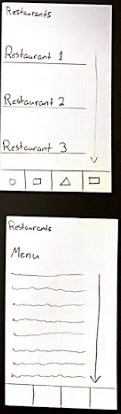 Restaurants
Restaurant 1
Restaurant 2
Restaurant 3
Restaurants
Menu